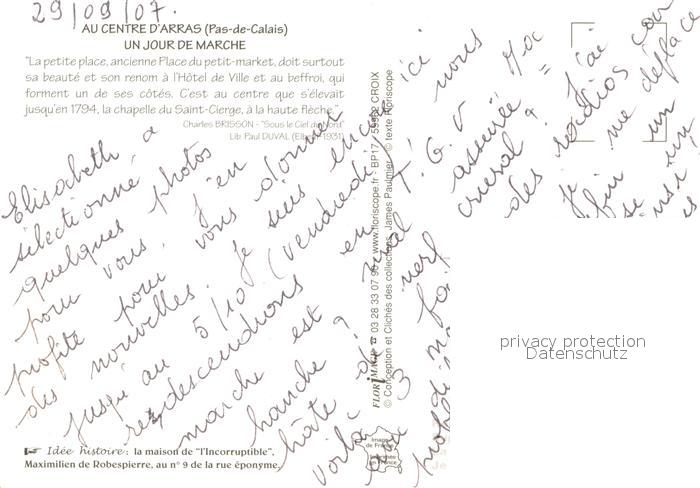 29/09/07.
AU CENTRE D'ARRAS (Pas-de-Calais)
UN JOUR DE MARCHE
"La petite place, ancienne Place du petit-market, doit surtout
sa beauté et son renom à l'Hôtel de Ville et au beffroi, qui
forment un de ses côtés. C'est au centre que s'élevait
jusqu'en 1794, la chapelle du Saint-Cierge, à la haute flèche,"
Charles BRISSON - "Sous le Ciel du Nord"
Lib Paul DUVAL (Elbeuf 1931)
Elisabeth a
sélectionné
quelques photos
pour vous. J'en
profite pour vous donner
des nouvelles. Je suis encore ici
jusqu'au 5/10 (vendredi)
redescendrons en T.G.V nous
marche est
hanche
hâte
voilà
assurée
crural
des radios J'ai
je me déplace
un
3 nerf
FLORIMAGE ☎ 03 28 33 07 96 www.floriscope.fr - BP17 / 59962 CROIX
© Conception et Clichés des collections James Paulmier © texte Floriscope
Image de France
Imprimée en France
☛ Idée histoire : la maison de "l'Incorruptible",
Maximilien de Robespierre, au n° 9 de la rue éponyme.
privacy protection
Datenschutz